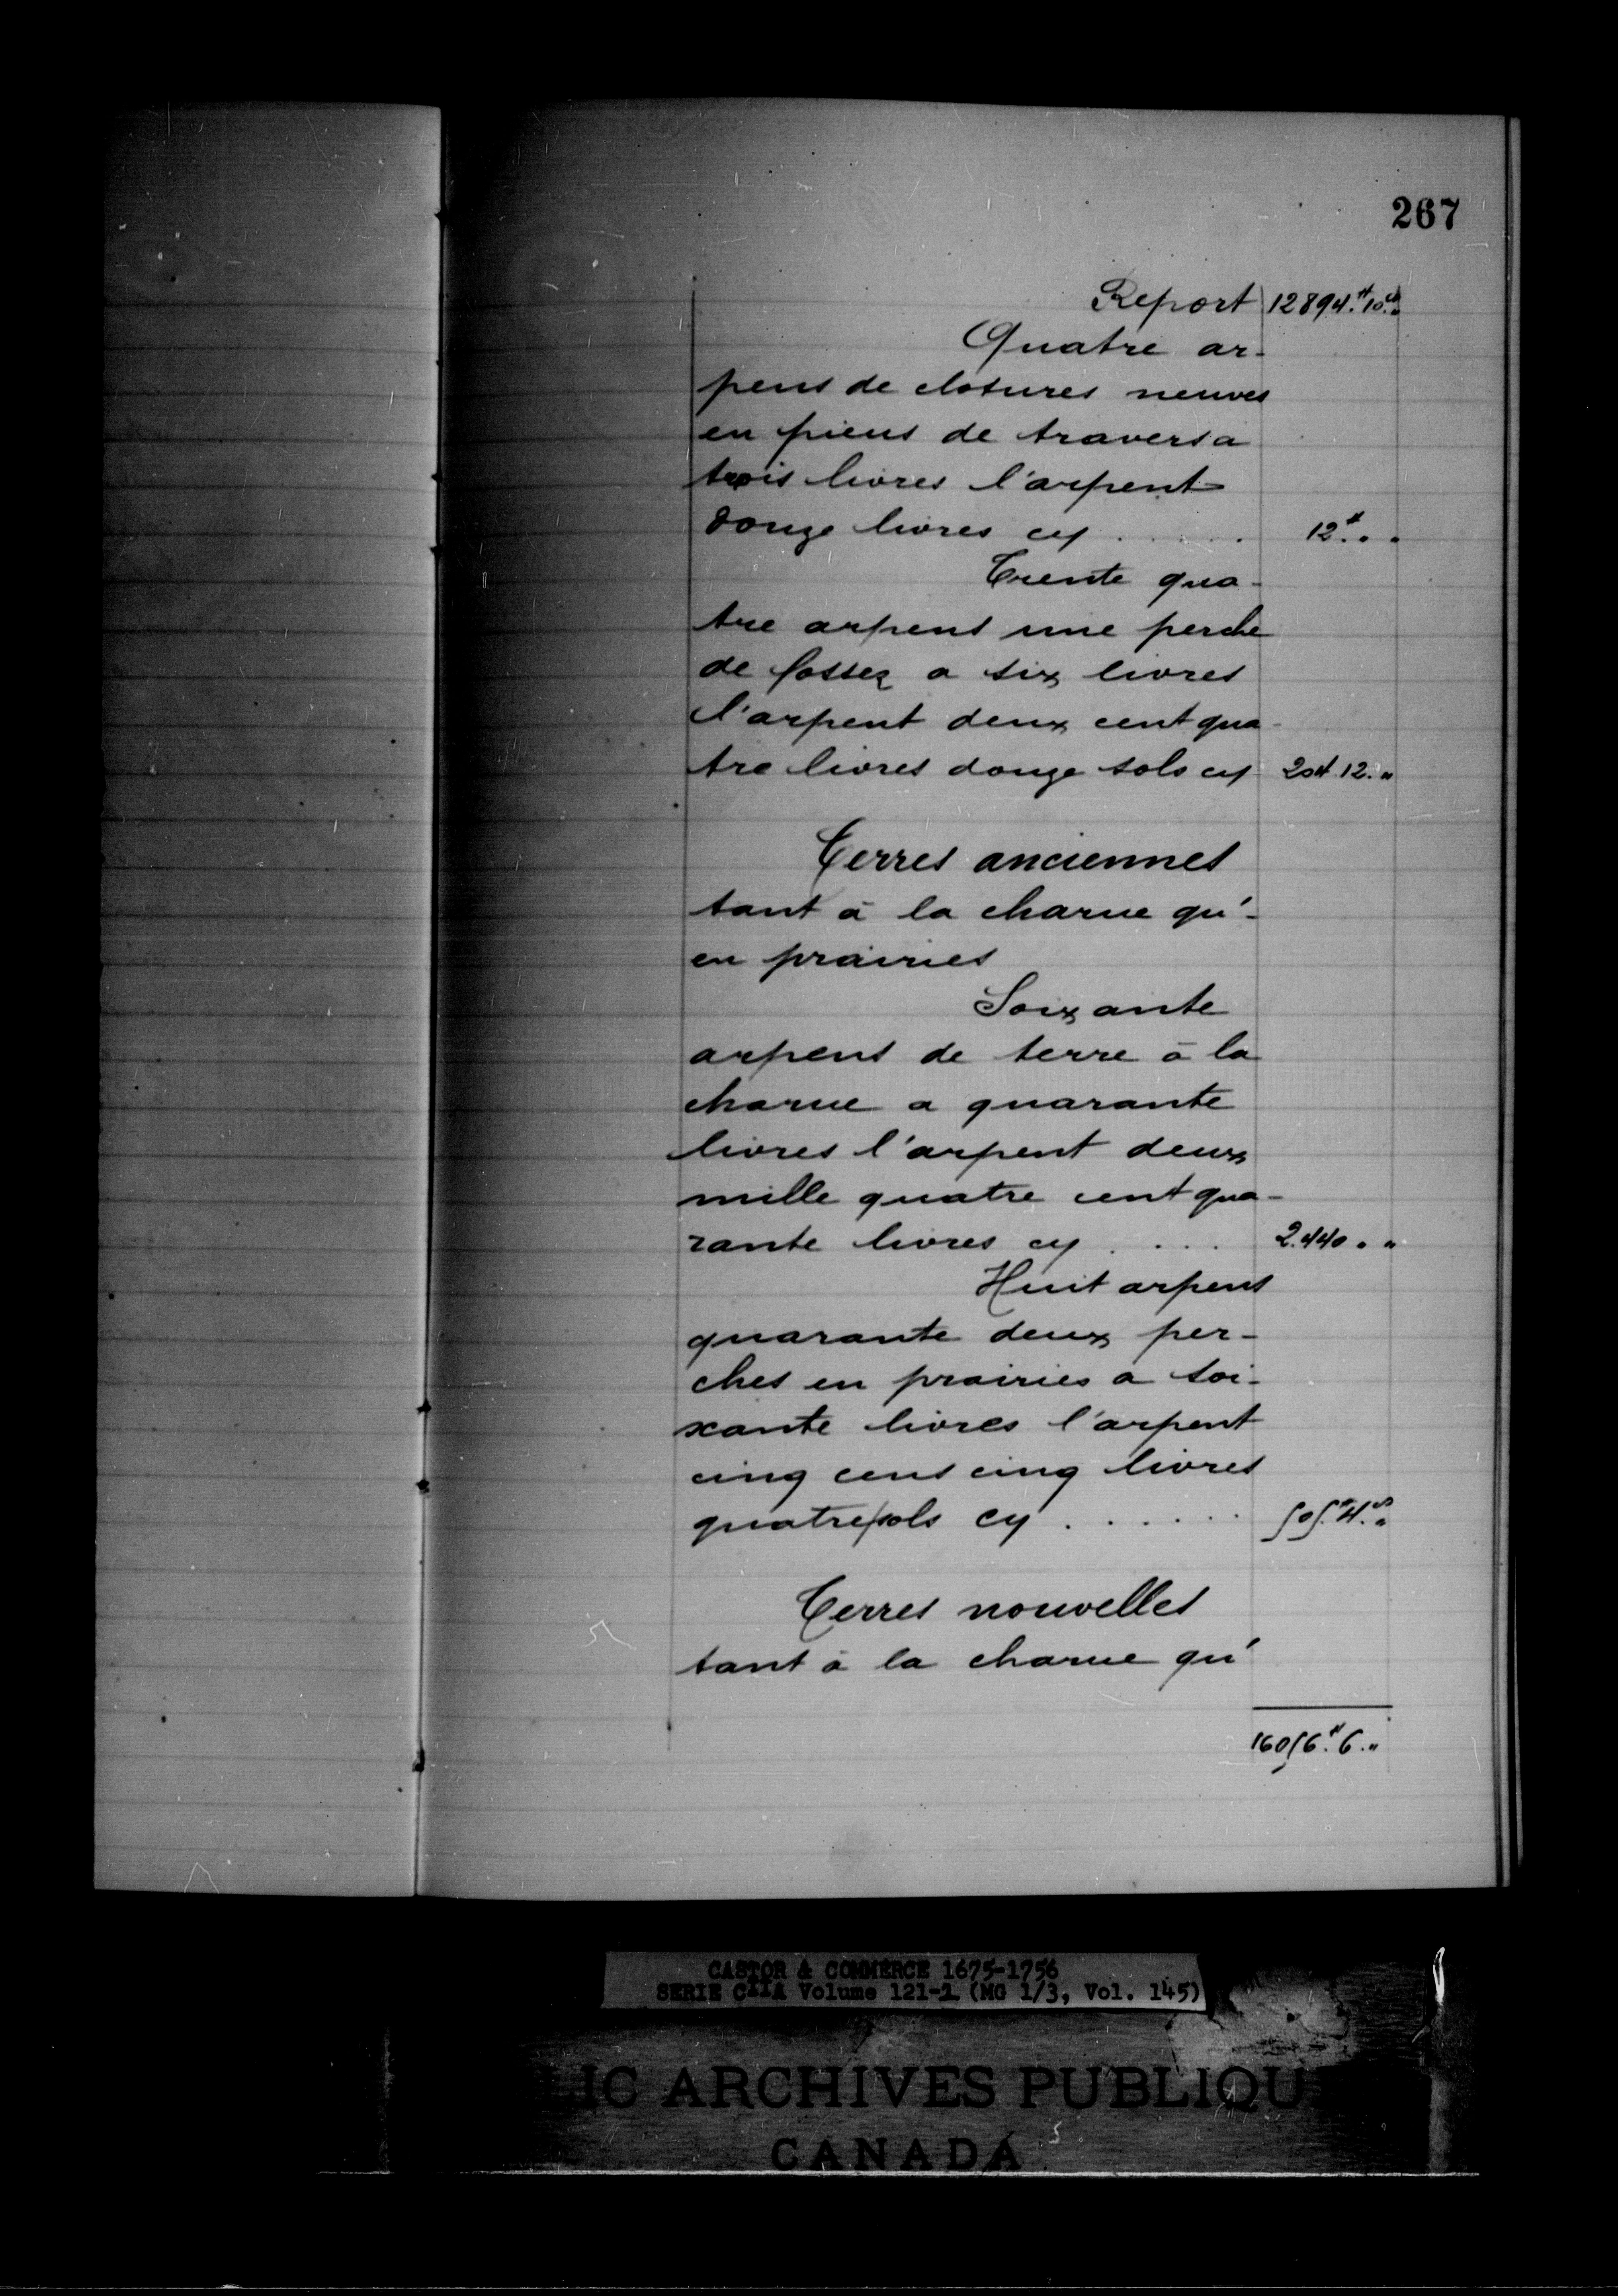 267
Report 12894.# 10.s "
Quatre ar-
pens de clotures neuves
en pieus de travers a
trois livres l'arpent
douze livres cy . . . . . 12.# " "
Trente qua-
tre arpens une perche
de fossez a six livres
l'arpent deux cent qua-
tre livres douze sols cy 204.12. "
Terres anciennes
tant à la charue qu'-
en prairies
Soixante
arpens de terre à la
charue a quarante
livres l'arpent deux
mille quatre cent qua-
rante livres cy . . . . 2.440 " "
Huit arpens
quarante deux per-
ches en prairies a soi-
xante livres l'arpent
cinq cens cinq livres
quatre sols cy . . . . . . 505.# 4.s "
Terres nouvelles
tant à la charue qu'
16056.# 6. "
CASTOR & COMMERCE 1675-1756
SERIE C11A Volume 121-1 (MG 1/3, Vol. 145)
LIC ARCHIVES PUBLIQU
CANADA